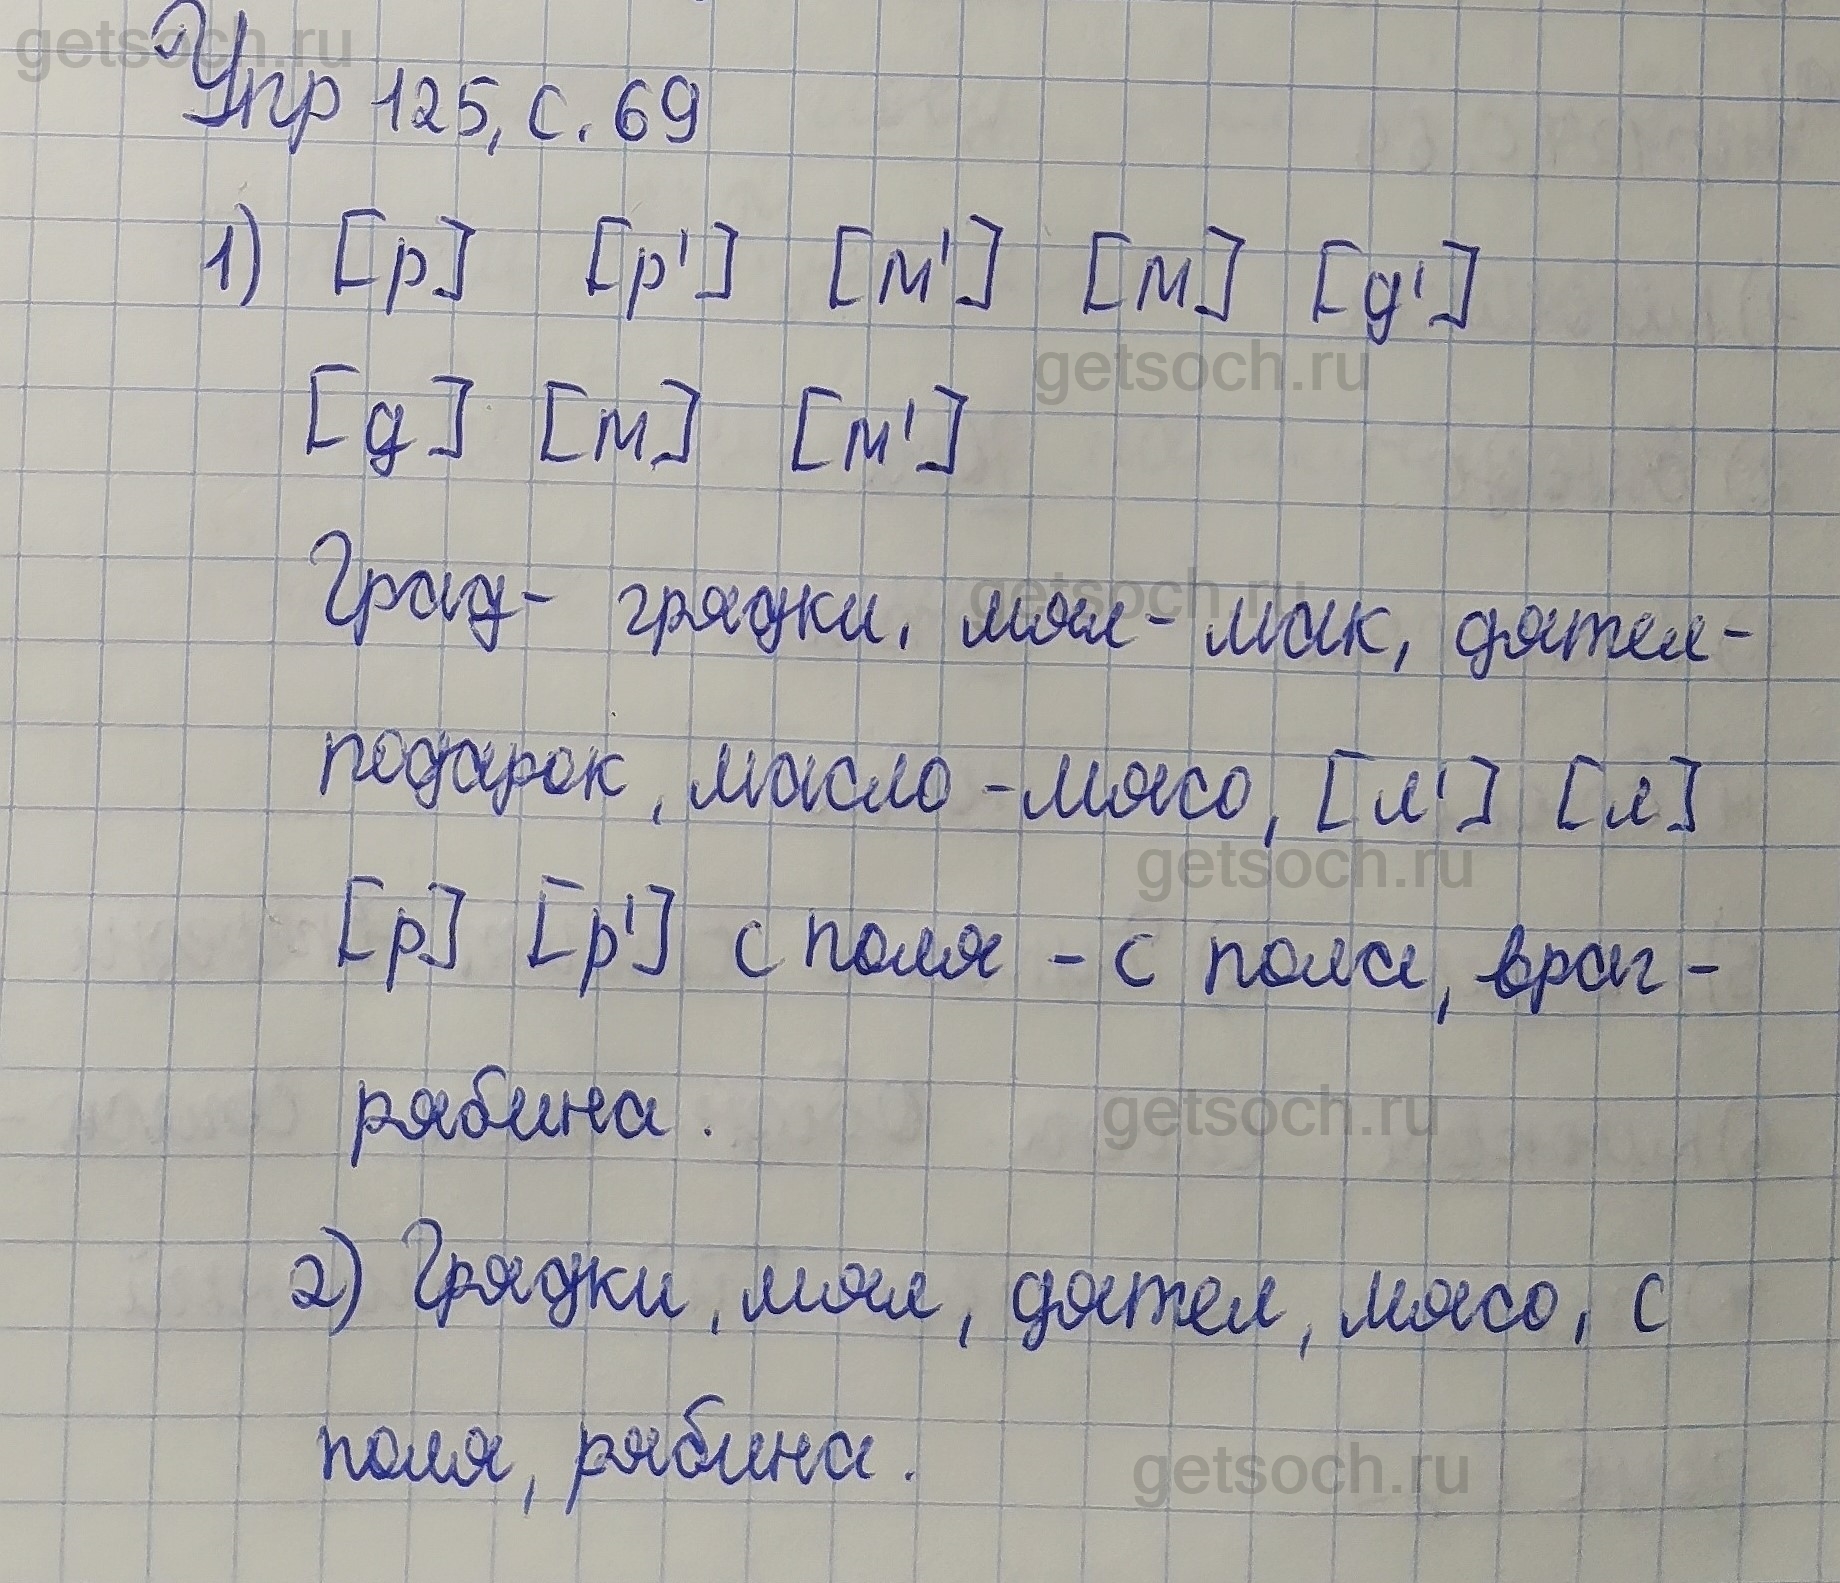 getsoch.ru
Упр 125, с. 69
1) [р] [р'] [м'] [м] [д']
getsoch.ru
[д] [м] [м']
getsoch.ru
Град- грядки, мял- мак, дятел-
подарок, масло - мясо, [л'] [л]
getsoch.ru
[р] [р'] с поля - с пола, враг -
рябина.
getsoch.ru
2) Грядки, мял, дятел, мясо, с
поля, рябина.
getsoch.ru